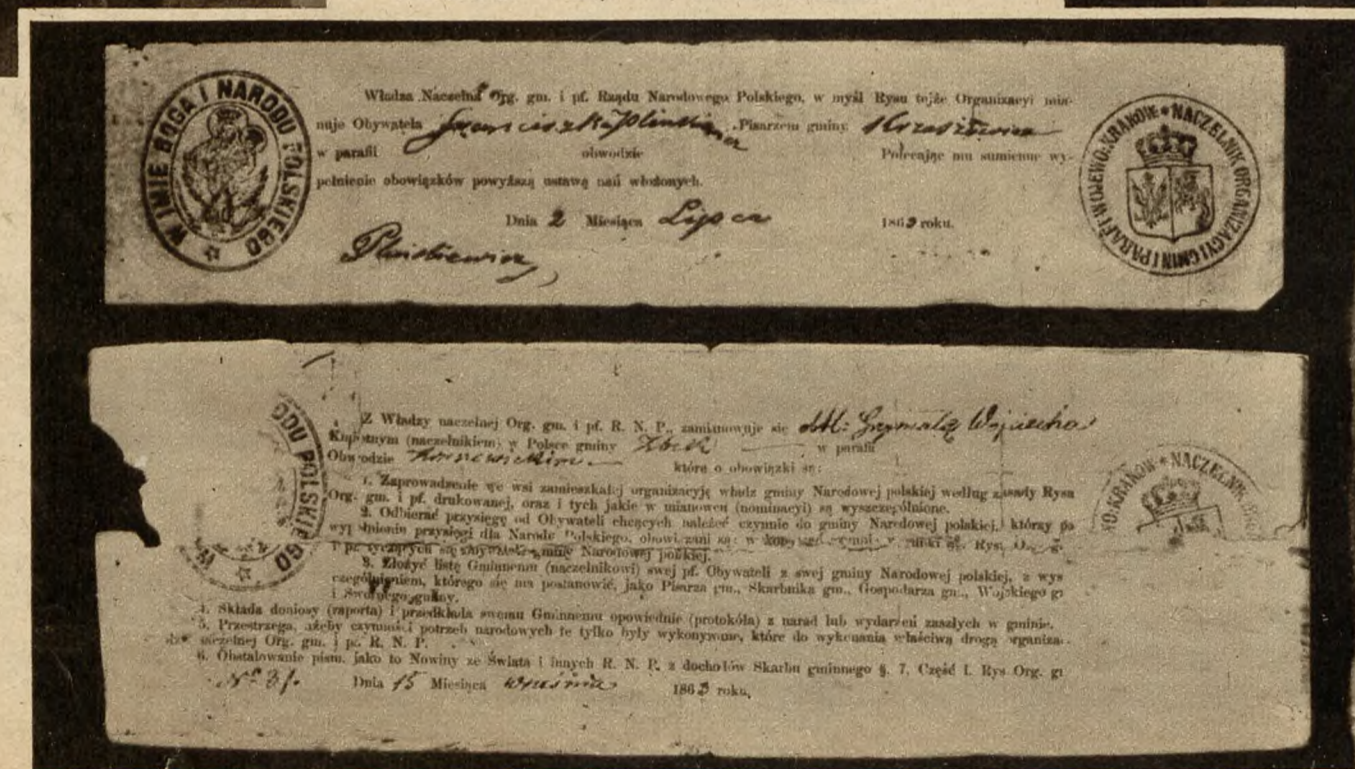 W IMIE BOGA I NARODU POLSKIEGO
Władza Naczelna Org. gm. i pf. Rządu Narodowego Polskiego, w myśl Rysu tejże Organizacyi mia-
nuje Obywatela Franciszka Pisarzem gminy
w parafii obwodzie Polecając mu sumienne wy-
pełnienie obowiązków powyższą ustawą nań włożonych.
Dnia 2 Miesiąca Lipca 1863 roku.
NACZELNIK ORGANIZACYI GMIN I PARAFI WOJEWO. KRAKOW
ODU POLSKIEGO
W
Z Władzy naczelnej Org. gm. i pf. R. N. P., zamianowuje się Grzymałę Wojciecha
(naczelnikiem) w Polsce gminy w parafii
Obwodzie które o obowiązki są:
1. Zaprowadzenie we wsi zamieszkałej organizacyję władz gminy Narodowej polskiej według zasady Rysu
Org. gm. i pf. drukowanej, oraz i tych jakie w mianowen (nominacyi) są wyszczególnione.
2. Odbierać przysięgę od Obywateli chcących należeć czynnie do gminy Narodowej polskiej, którzy po
wypełnieniu przysięgi dla Narodu Polskiego, obowiązani są:
i pf. tyczących się gminie Narodowej polskiej.
3. Złożyć listę Gminnemu (naczelnikowi) swej pf. Obywateli z swej gminy Narodowej polskiej, z wys
czególnieniem, którego się ma postanowić, jako Pisarza gm., Skarbnika gm., Gospodarza gm., Wojskiego gi
i gminy.
4. Składa doniosy (raporta) i przedkłada swemu Gminnemu opowiednie (protokóła) z narad lub wydarzeń zaszłych w gminie.
5. Przestrzega, ażeby czynności potrzeb narodowych te tylko były wykonywane, które do wykonania właściwą drogą organiza-
naczelnej Org. gm. i pf. R. N. P.
6. Obstalowanie pism. jako to Nowiny ze Świata i innych R. N. P. z dochołów Skarbu gminnego §. 7. Część I. Rys Org. gi
Dnia 15 Miesiąca Września 1863 roku,
O-KRAKOW NACZELNIK